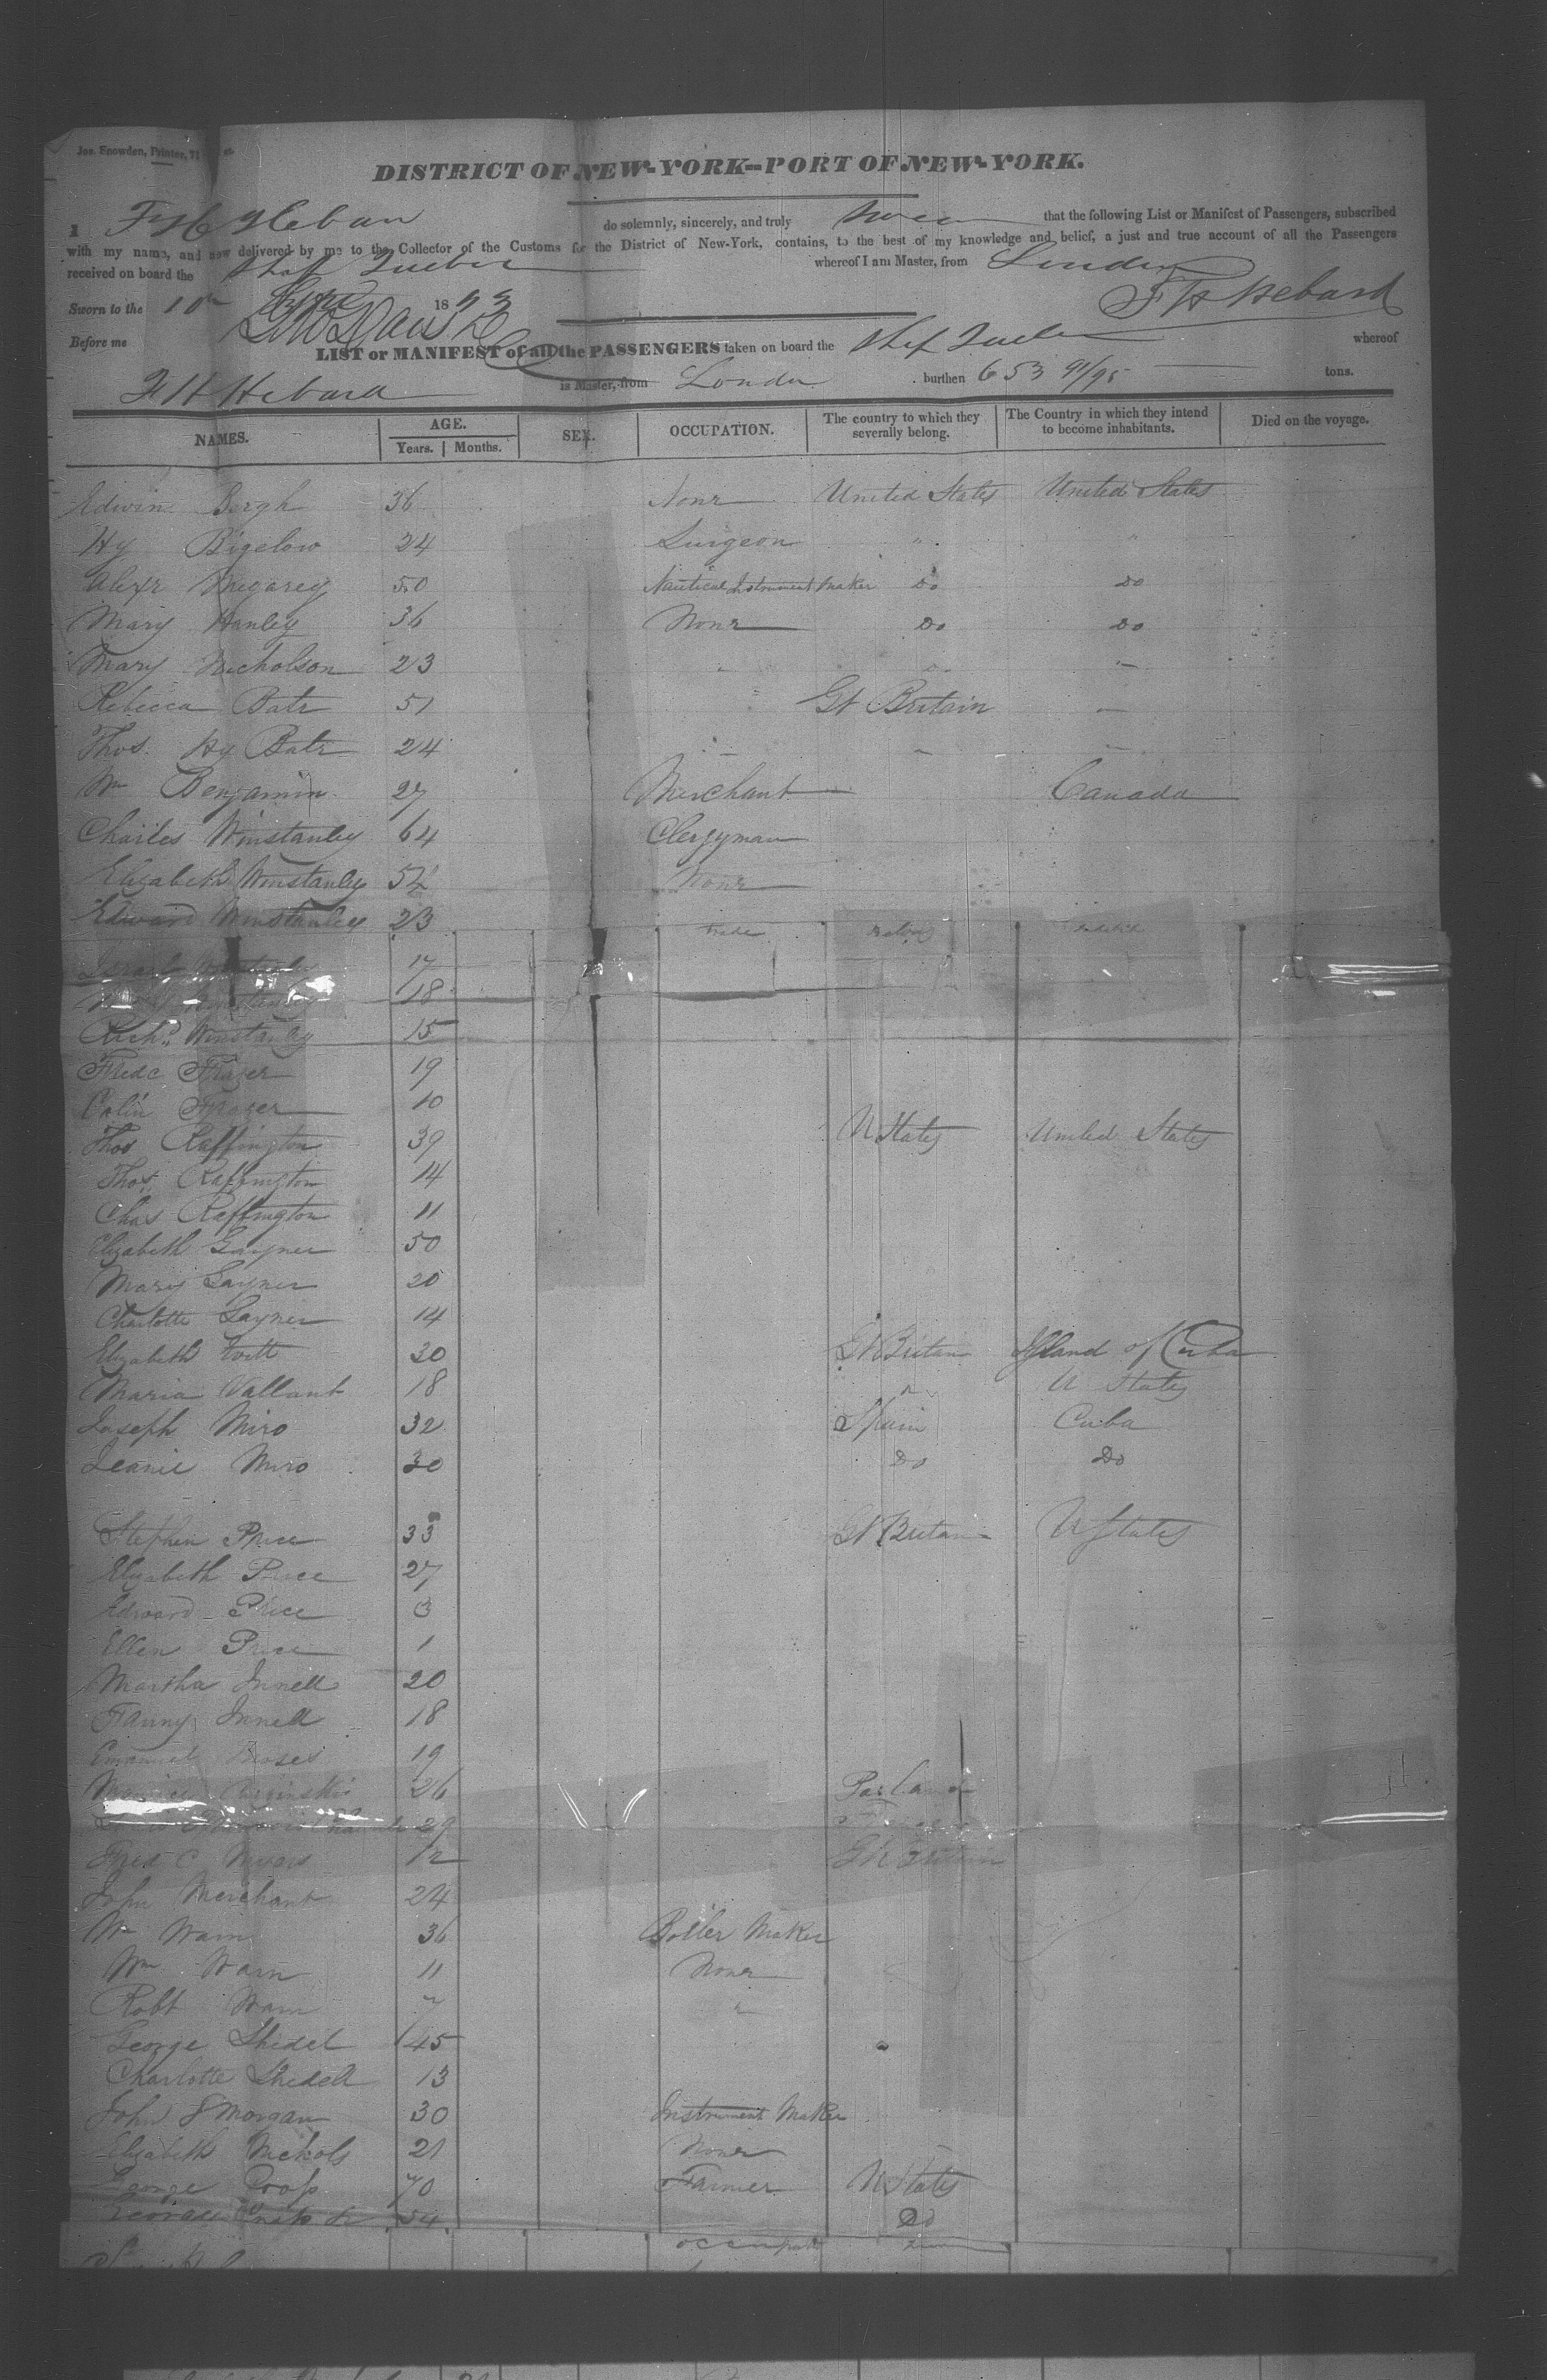 Jos. Snowden, Printer, 71
DISTRICT OF NEW-YORK--PORT OF NEW-YORK.
I F H Hebard do solemnly, sincerely, and truly Swear that the following List or Manifest of Passengers, subscribed
with my name, and now delivered by me to the Collector of the Customs for the District of New-York, contains, to the best of my knowledge and belief, a just and true account of all the Passengers
received on board the Ship Quebec whereof I am Master, from London
Sworn to the 10th 18 F H Hebard
Before me
LIST or MANIFEST of all the PASSENGERS taken on board the Ship Quebec whereof
F H Hebard is Master, from London burthen 653 91/95 tons.
NAMES. AGE. Years. Months. SEX. OCCUPATION. The country to which they severally belong. The Country in which they intend to become inhabitants. Died on the voyage.
Edwin Bergh 36 None United States United States
Hy Bigelow 24 Surgeon " "
Alexr Megarey 50 Nautical Instrument Maker Do Do
Mary Hanley 36 None Do Do
Mary Nicholson 23 " " "
Rebecca Bate 51 Gt Britain
Thos. Hy Bate 24
Wm Benjamin 27 Merchant Canada
Charles Winstanley 64 Clergyman
Elizabeth Winstanley 54 None
Edward Winstanley 23
trade
17
18
Richd Winstanley 15
Fredc Frazer 19
Colin Frazer 10
Thos Raffington 39 U States United States
Thos. Raffington 14
Chas Raffington 11
Elizabeth Gayner 50
Mary Gayner 20
Charlotte Gayner 14
Elizabeth 30 Gt Britain Island of Cuba
Maria Vallant 18 " U States
Joseph Miro 32 Spain Cuba
Jeanie Miro 30 Do Do
Stephen Price 33 Gt Britain U States
Elizabeth Price 27
Edward Price 3
Ellen Price 1
Martha Innell 20
Fanny Innell 18
Emanuel Moses 19
26
29
Fred C Myers 12 Gt Britain
John Merchant 24
Wm Warn 36 Boiler Maker
Wm Warn 11 None
Robt Warn "
George Shedel 45
Charlotte Shedell 13
John S Morgan 30 Instrument Maker
Elizabeth Nichols 21 None
George 70 Farmer U States
54 Do